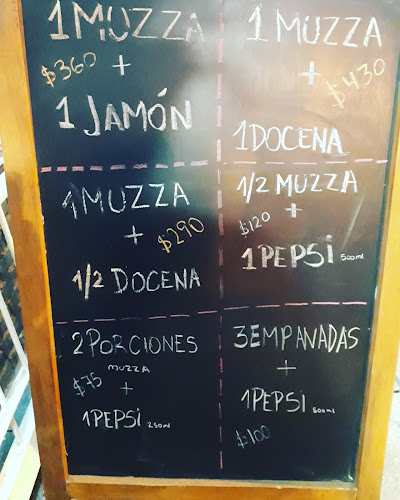 1 MUZZA
$360
+
1 JAMÓN
1 MUZZA
+
$430
1 DOCENA
1 MUZZA
+
$290
1/2 DOCENA
1/2 MUZZA
$120
+
1 PEPSi 500ml
2 PORCIONES
MUZZA
$75
+
1 PEPSi 250ml
3 EMPANADAS
+
1 PEPSi 500ml
$100